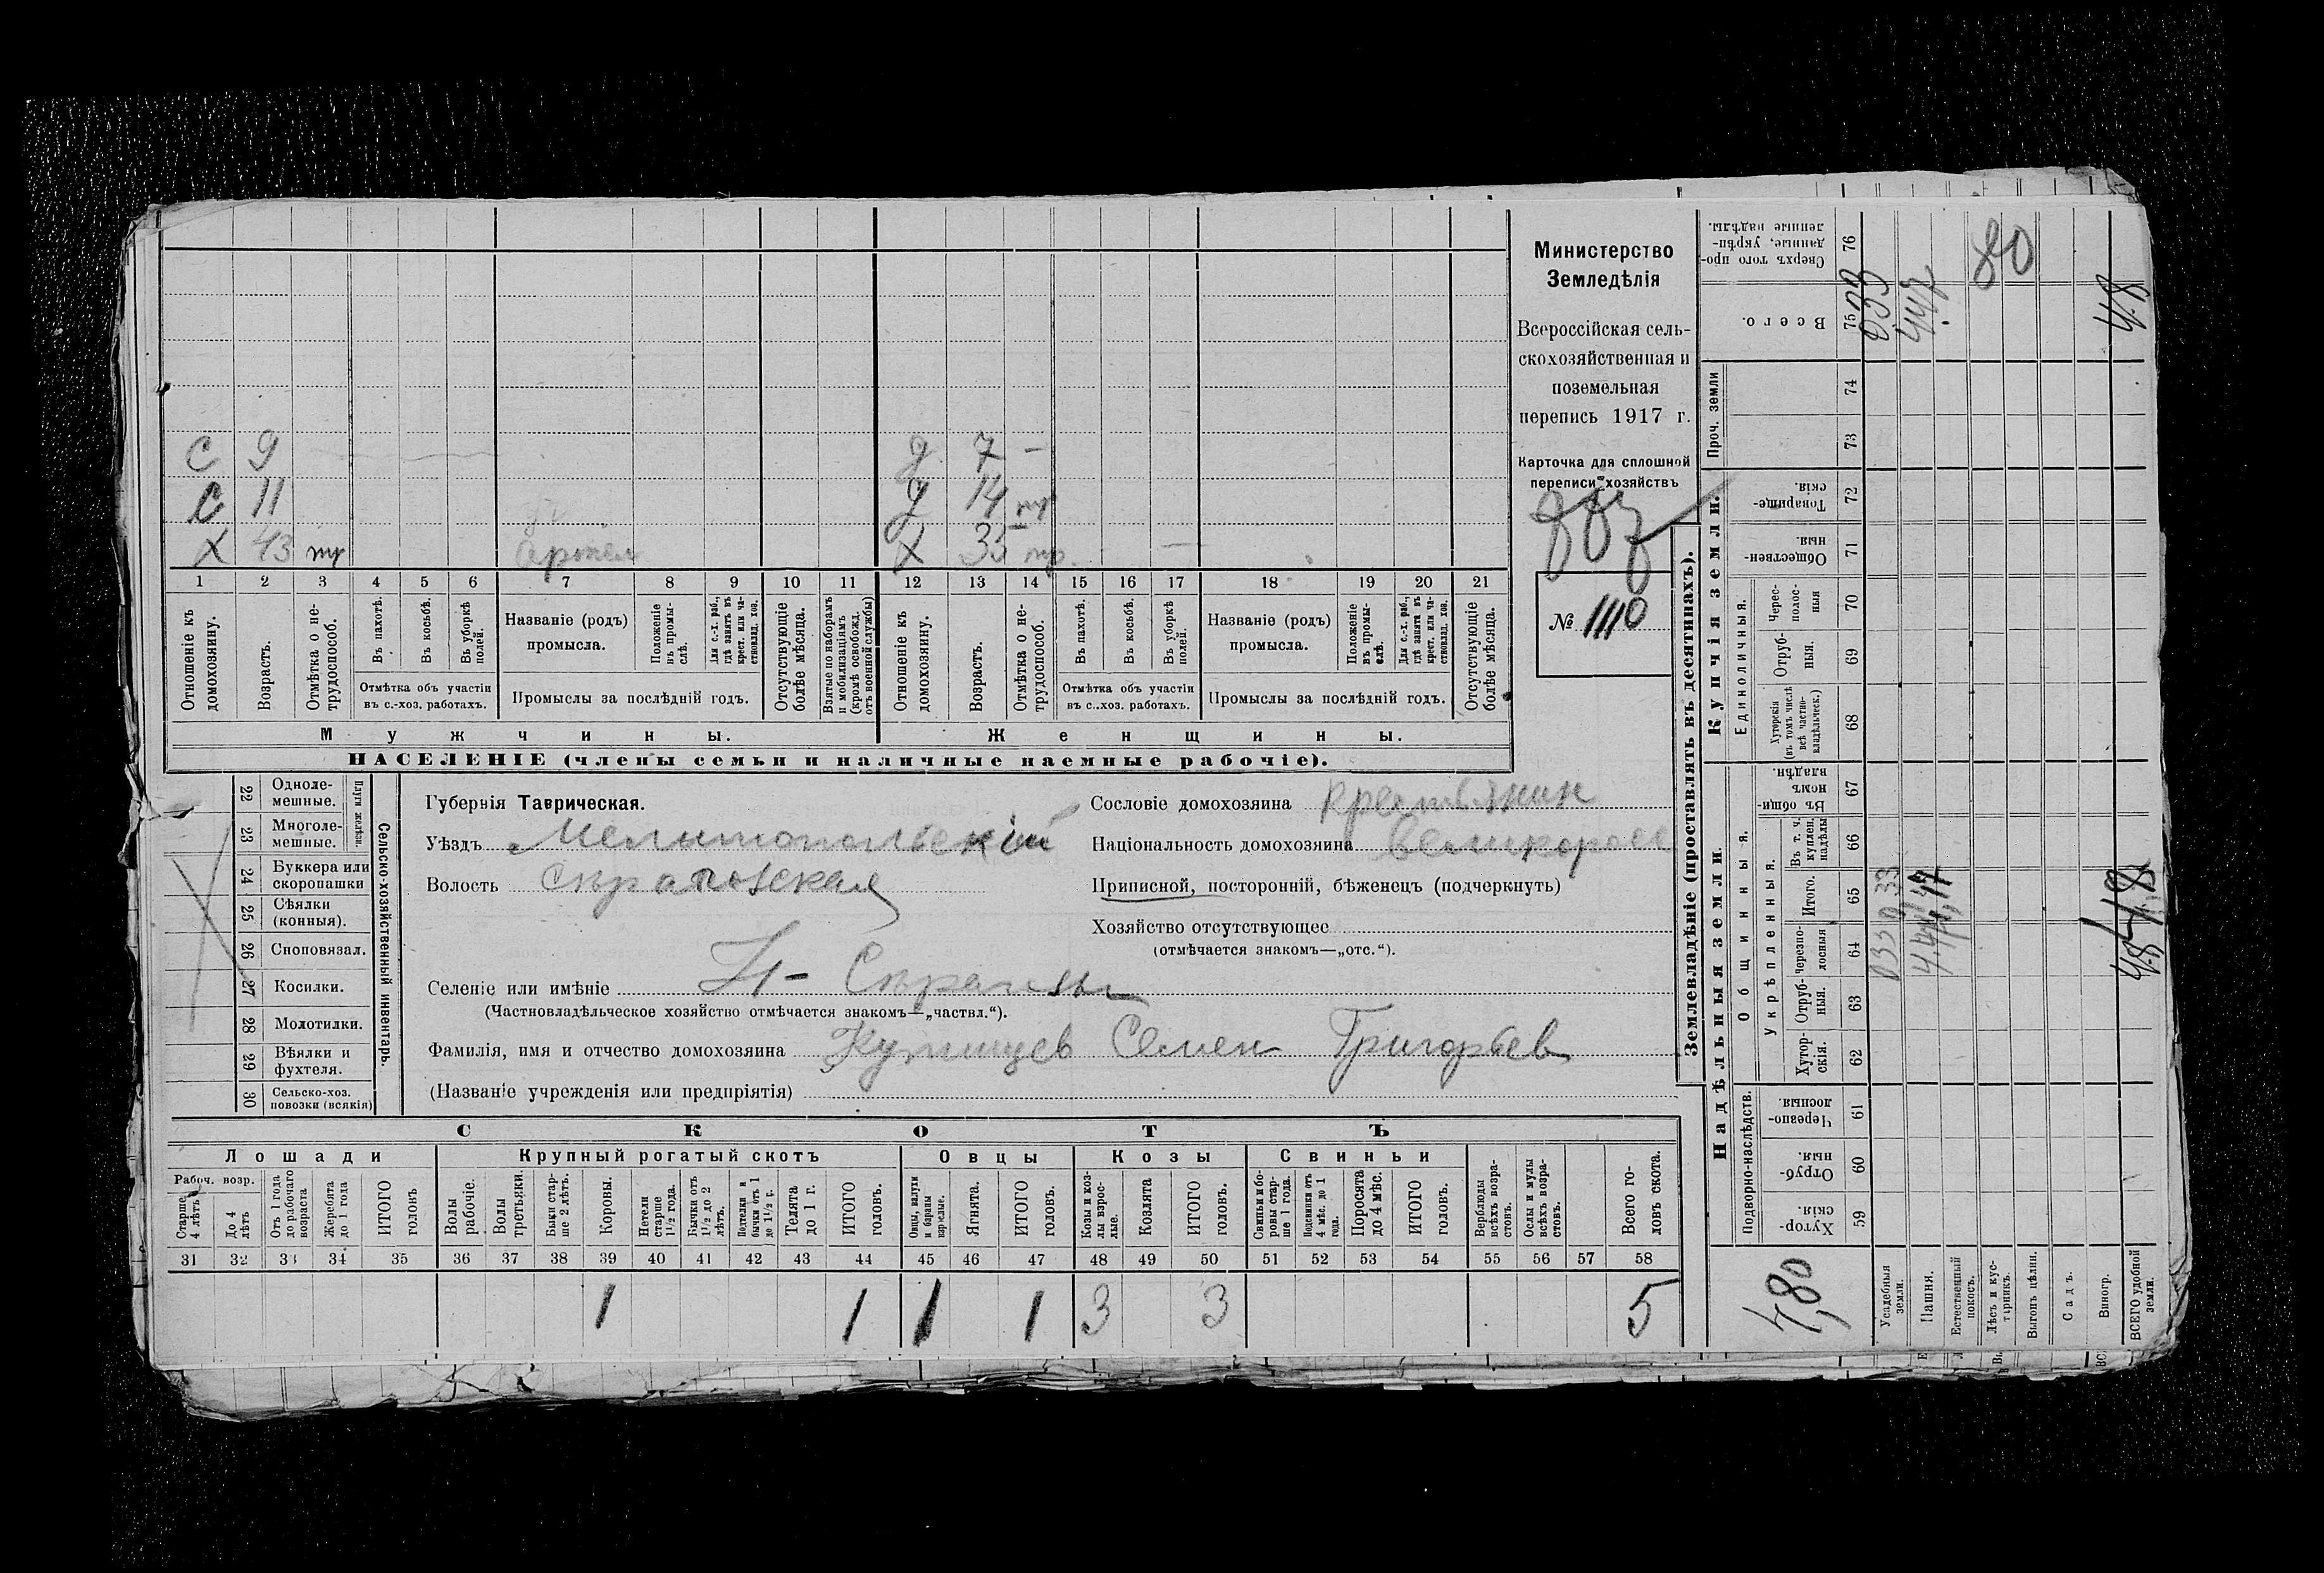 С 9 д 7 –
С 11 д 14 тр
Х 43 тр Х 35 тр. —
1 2 3 4 5 6 7 8 9 10 11 12 13 14 15 16 17 18 19 20 21
Отношеніе къ домохозяину.
Возрастъ.
Отмѣтка о не-трудоспособ.
Въ пахотѣ.
Въ косьбѣ.
Въ уборкѣ полей.
Отмѣтка объ участіи
въ с.-хоз. работахъ.
Названіе (родъ)
промысла.
Положеніе въ промы-слѣ.
Для с.-х. раб., гдѣ занятъ въ крест. или ча-стновлад. хоз.
Промыслы за послѣдній годъ.
Отсутствующіе болѣе мѣсяца.
Взятые по наборамъ и мобилизаціямъ (кромѣ освобожд. отъ военной службы)
Отношеніе къ домохозяину.
Возрастъ.
Отмѣтка о не-трудоспособ.
Въ пахотѣ.
Въ косьбѣ.
Въ уборкѣ полей.
Отмѣтка объ участіи
въ с.-хоз. работахъ.
Названіе (родъ)
промысла.
Положеніе въ промы-слѣ.
Для с.-х. раб., гдѣ занята въ крест. или ча-стновлад. хоз.
Промыслы за послѣдній годъ.
Отсутствующіе болѣе мѣсяца.
Мужчины. Женщины.
НАСЕЛЕНІЕ (члены семьи и наличные наемные рабочіе).
Министерство
Земледѣлія
Всероссійская сель-
скохозяйственная и
поземельная
перепись 1917 г.
Карточка для сплошной
переписи хозяйствъ
№ 1110
22 Одноле-мешные.
23 Многоле-мешные.
Плуги желѣзн.
24 Буккера или скоропашки
25 Сѣялки (конныя).
26 Сноповязал.
27 Косилки.
28 Молотилки.
29 Вѣялки и фухтеля.
30 Сельско-хоз. повозки (всякія)
Сельско-хозяйственный инвентарь.
Губернія Таврическая.
Уѣздъ Мелитопольскій
Волость Сѣрагозская
Селеніе или имѣніе Н- Сѣрагозы
(Частновладѣльческое хозяйство отмѣчается знакомъ—„частвл.“).
Фамилія, имя и отчество домохозяина Семен Григорьев
(Названіе учрежденія или предпріятія)
Сословіе домохозяина крестьянин
Національность домохозяина великоросс
Приписной, посторонній, бѣженецъ (подчеркнуть)
Хозяйство отсутствующее
(отмѣчается знакомъ—„отс.“).
СКОТЪ
Лошади Крупный рогатый скотъ Овцы Козы Свиньи
Рабоч. возр.
Старше 4 лѣтъ
До 4 лѣтъ
Отъ 1 года до рабочаго возраста
Жеребята до 1 года
ИТОГО головъ
Волы рабочіе.
Волы третьяки.
Быки стар-ше 2 лѣтъ.
Коровы.
Нетели старше 1½ года.
Бычки отъ 1½ до 2 лѣтъ.
Подтелки и бычки отъ 1 до 1½ г.
Телята до 1 г.
ИТОГО головъ.
Овцы, валухи и бараны взрослые.
Ягнята.
ИТОГО головъ.
Козы и коз-лы взрос-лые.
Козлята
ИТОГО головъ.
Свиньи и бо-ровы стар-ше 1 года.
Подсвинки отъ 4 мѣс. до 1 года.
Поросята до 4 мѣс.
ИТОГО головъ.
Верблюды всѣхъ возра-стовъ.
Ослы и мулы всѣхъ возра-стовъ.
Всего го-ловъ скота.
31 32 33 34 35 36 37 38 39 40 41 42 43 44 45 46 47 48 49 50 51 52 53 54 55 56 57 58
1 1 1 1 3 3 5
Землевладѣніе (проставлять въ десятинахъ).
Надѣльныя земли. Купчія земли.
Подворно-наслѣдств. Общинныя. Единоличныя. Проч. земли
Укрѣпленныя.
Хутор-скія. 59
Отруб-ныя. 60
Черезпо-лосныя 61
Хутор-скія. 62
Отруб-ныя. 63
Черезпо-лосныя 64
Итого. 65
Въ т. ч. куплен. надѣлы 66
Въ общи-номъ владѣн. 67
Хуторскія (въ томъ числѣ всѣ частно-владѣльческ.) 68
Отруб-ныя. 69
Черес-полос-ныя 70
Обществен-ныя. 71
Товарище-скія. 72
73
74
Всего. 75
Сверхъ того про-данные, укрѣп-ленные надѣлы. 76
Усадебныя земли. 033 0,33 033
Пашня. 4.47 4,47 447
Естественный покосъ.
Лѣсъ и кус-тарникъ.
Выгонъ цѣлин.
Садъ.
Виногр.
ВСЕГО удобной земли. 48 4.8 4.8
4,80
80